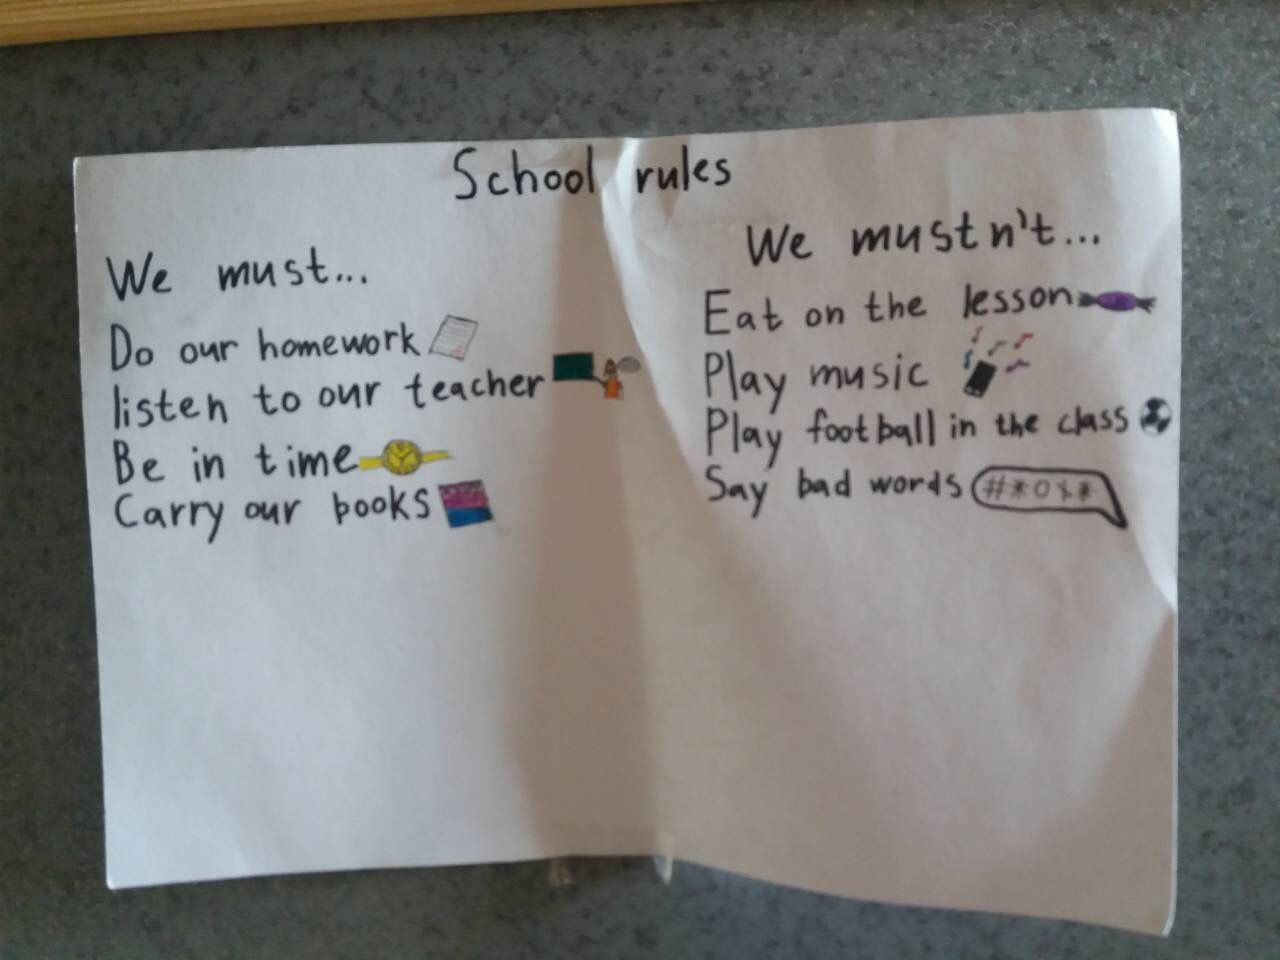 School rules
We must...
Do our homework
listen to our teacher
Be in time
Carry our books
We mustn't...
Eat on the lesson
Play music
Play football in the class
Say bad words
#*0%*